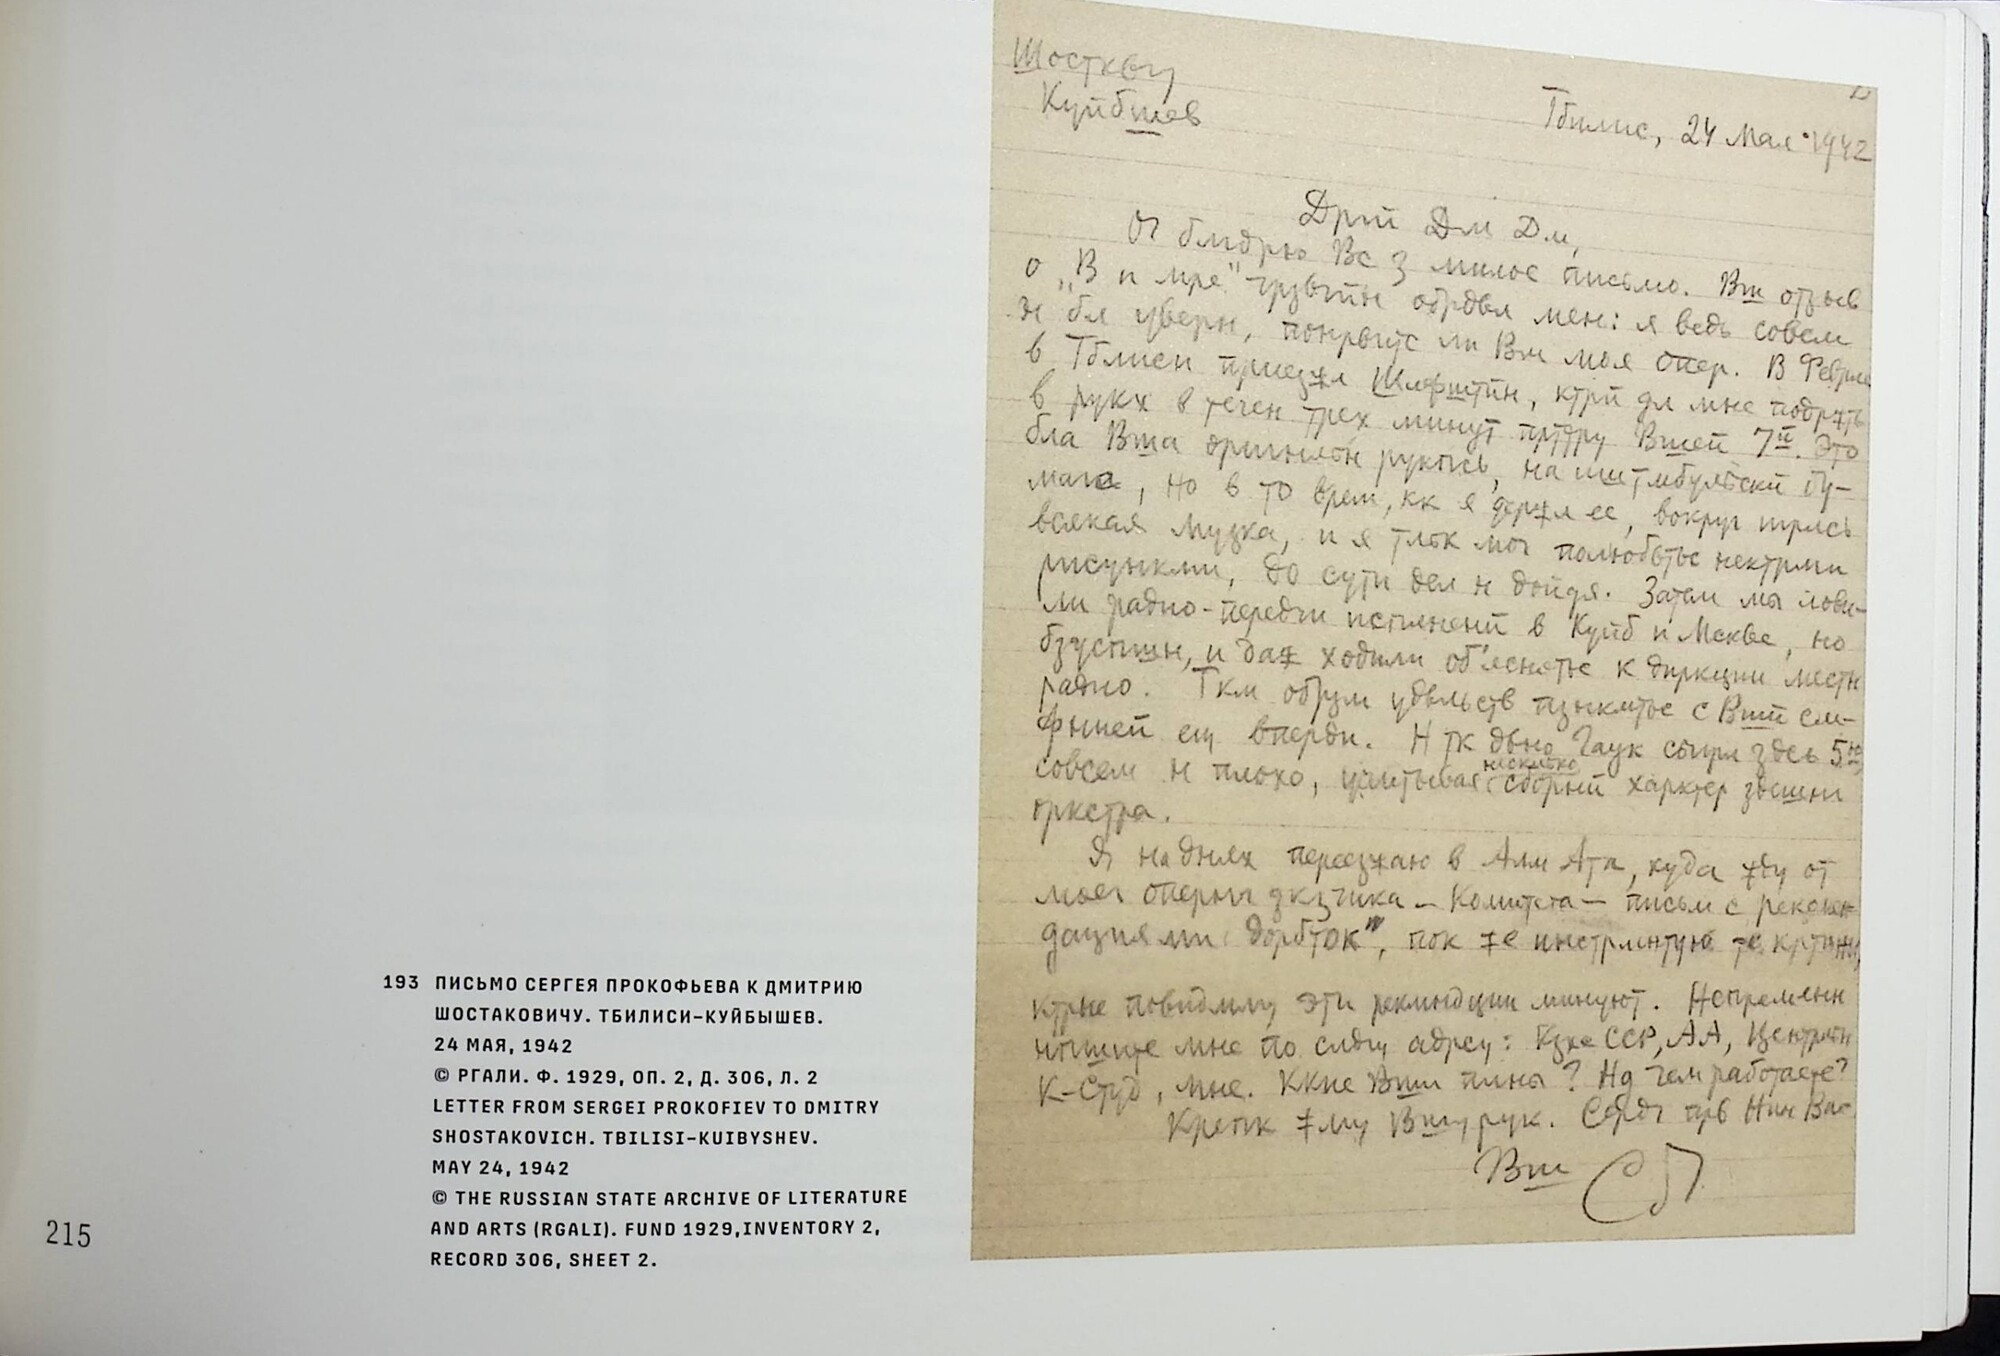 193 ПИСЬМО СЕРГЕЯ ПРОКОФЬЕВА К ДМИТРИЮ
ШОСТАКОВИЧУ. ТБИЛИСИ–КУЙБЫШЕВ.
24 МАЯ, 1942
© РГАЛИ. Ф. 1929, ОП. 2, Д. 306, Л. 2
LETTER FROM SERGEI PROKOFIEV TO DMITRY
SHOSTAKOVICH. TBILISI–KUIBYSHEV.
MAY 24, 1942
© THE RUSSIAN STATE ARCHIVE OF LITERATURE
AND ARTS (RGALI). FUND 1929,INVENTORY 2,
RECORD 306, SHEET 2.
215
Шостквч
Куйбшев
Тбилис, 24 мая 1942
Дргй Дм Дм,
Оч блгдрю Вс з милое письмо. Вш отзыв
о „В и мре" чрзвчйн обрдвл мен: я ведь совсем
н бл уверн, понрвитс ли Вм моя опер. В Феврле
в Тблиси приезжл Шлфштйн, ктрй дл мне подржть
в рукх в течен трех минут прттру Вшей 7й. Это
бла Вша оригнлн рукпсь, на штмбулвск бу-
маге, но в то врем, кк я держл ее, вокруг игрлсь
всякая музка, и я тльк мог полюбвтьс нектрми
рисункми, до сути дел н дойдя. Затем мы лови-
ли радио-передчи исплнений в Куйб и Мскве, но
бзуспшн, и даж ходили об'яснтьс к дирекции местн
радио. Ткм обрзм удвльств пзнкмтьс с Вшй сим-
фнией ещ вперди. Н тк двно Гаук сыгрл здсь 5ю,
совсем н плохо, учитывая несклько сборный характер здешни
оркстра.
Я на днях переезжаю в Алм Ата, куда жду от
моег оперног зкзчика – Комитета – письм с рекомен-
дациями „дорбток", пок же инструментую те кртины,
ктрые повидиму эти рекмндции минуют. Непременн
нпишите мне по слдщ адресу: Кзх ССР, АА, Центрльн
К-Студ, мне. Ккие Вши плны? Нд чем работаете?
Крепк жму Вшу рук. Сердч прв Нин Вас
Вш СП